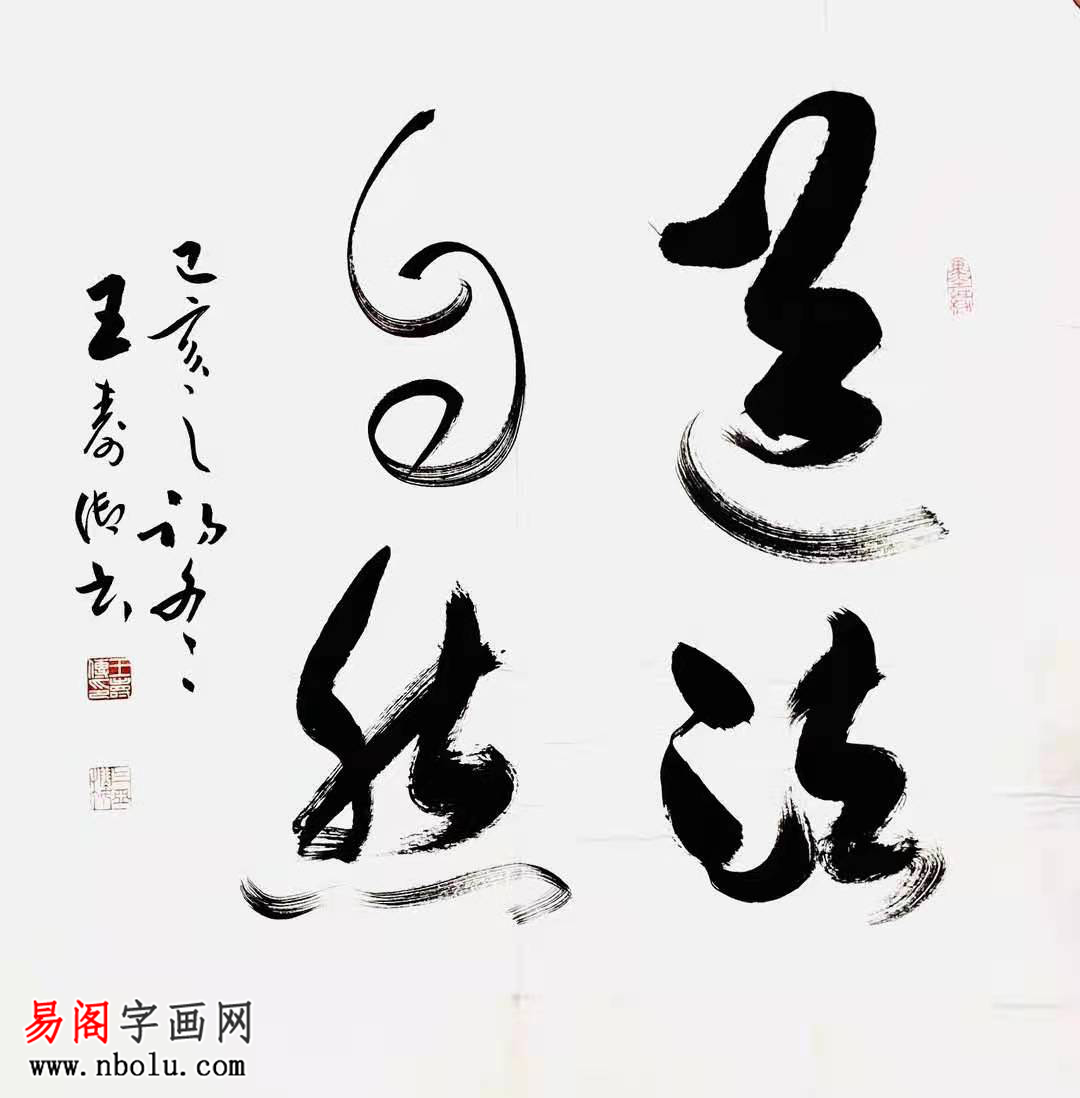 道法
自然
己亥之初冬
王寿
书
易阁字画网
www.nbolu.com